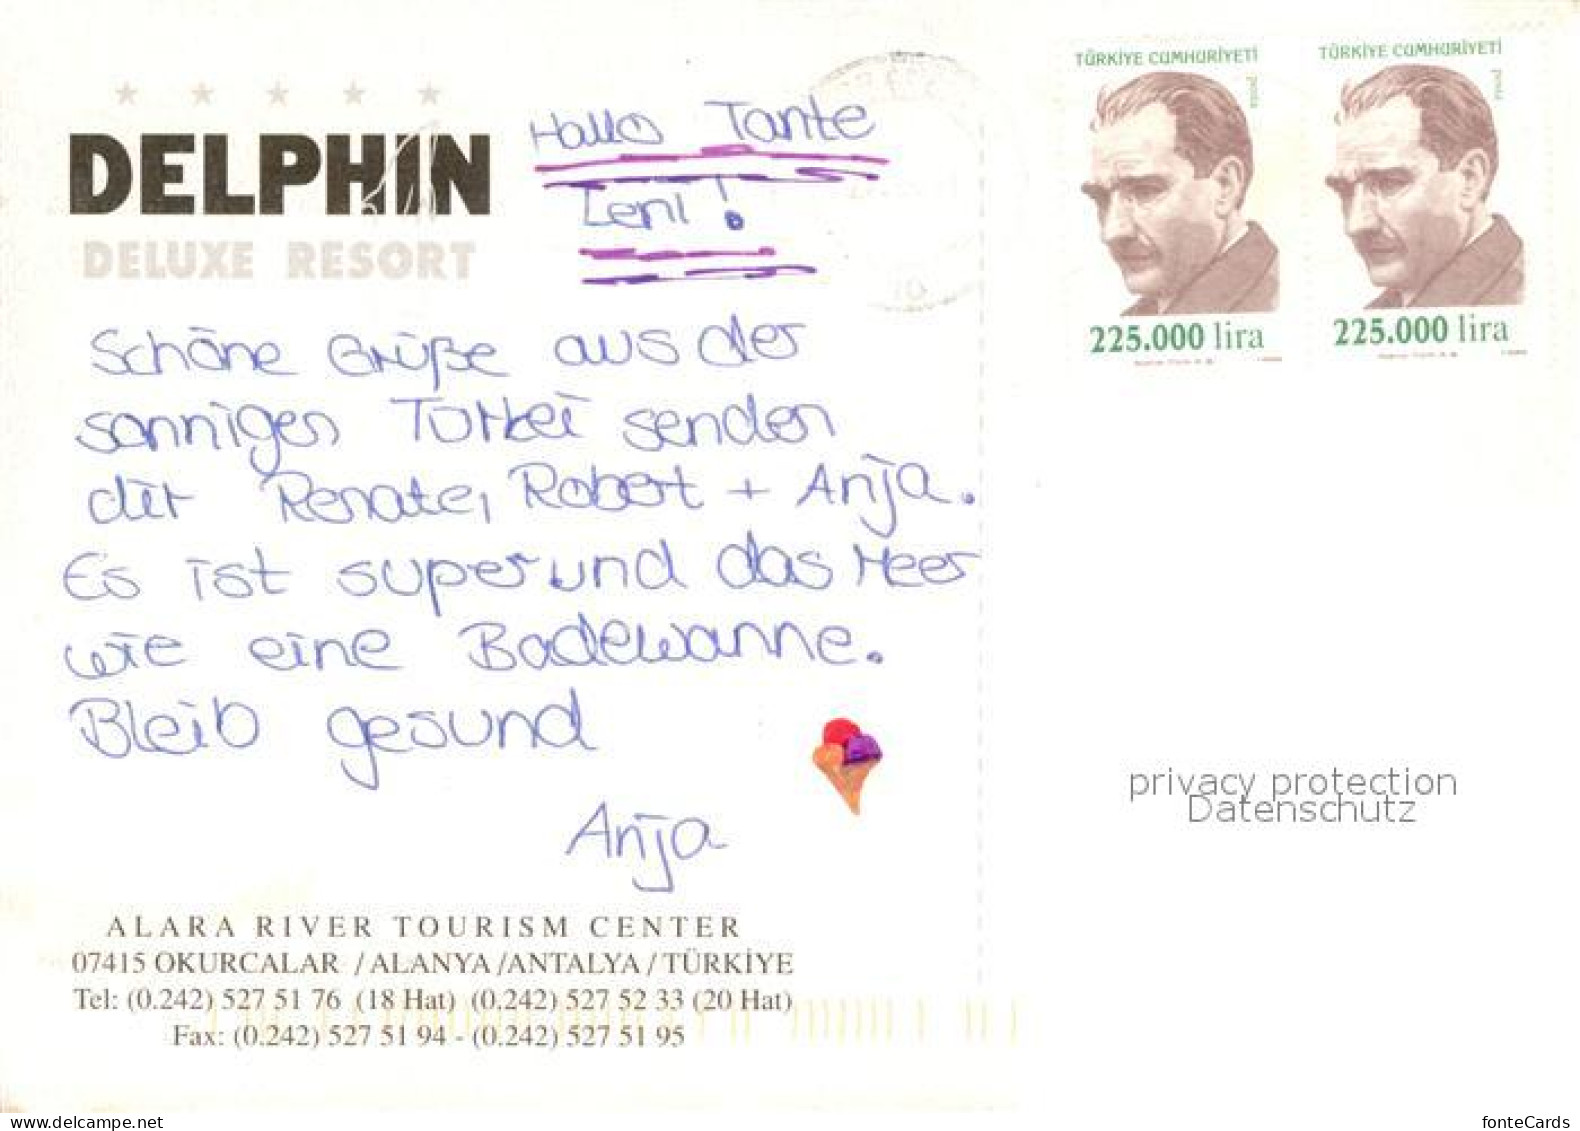 DELPHIN
DELUXE RESORT
Hallo Tante
Leni!
Schöne Grüße aus der
sonnigen Türkei senden
dir Renate, Robert + Anja.
Es ist super und das Meer
wie eine Badewanne.
Bleib gesund
Anja
ALARA RIVER TOURISM CENTER
07415 OKURCALAR / ALANYA / ANTALYA / TÜRKİYE
Tel: (0.242) 527 51 76 (18 Hat) (0.242) 527 52 33 (20 Hat)
Fax: (0.242) 527 51 94 - (0.242) 527 51 95
TÜRKİYE CUMHURİYETİ
posta
225.000 lira
TÜRKİYE CUMHURİYETİ
posta
225.000 lira
privacy protection
Datenschutz
delcampe.net
fonteCards